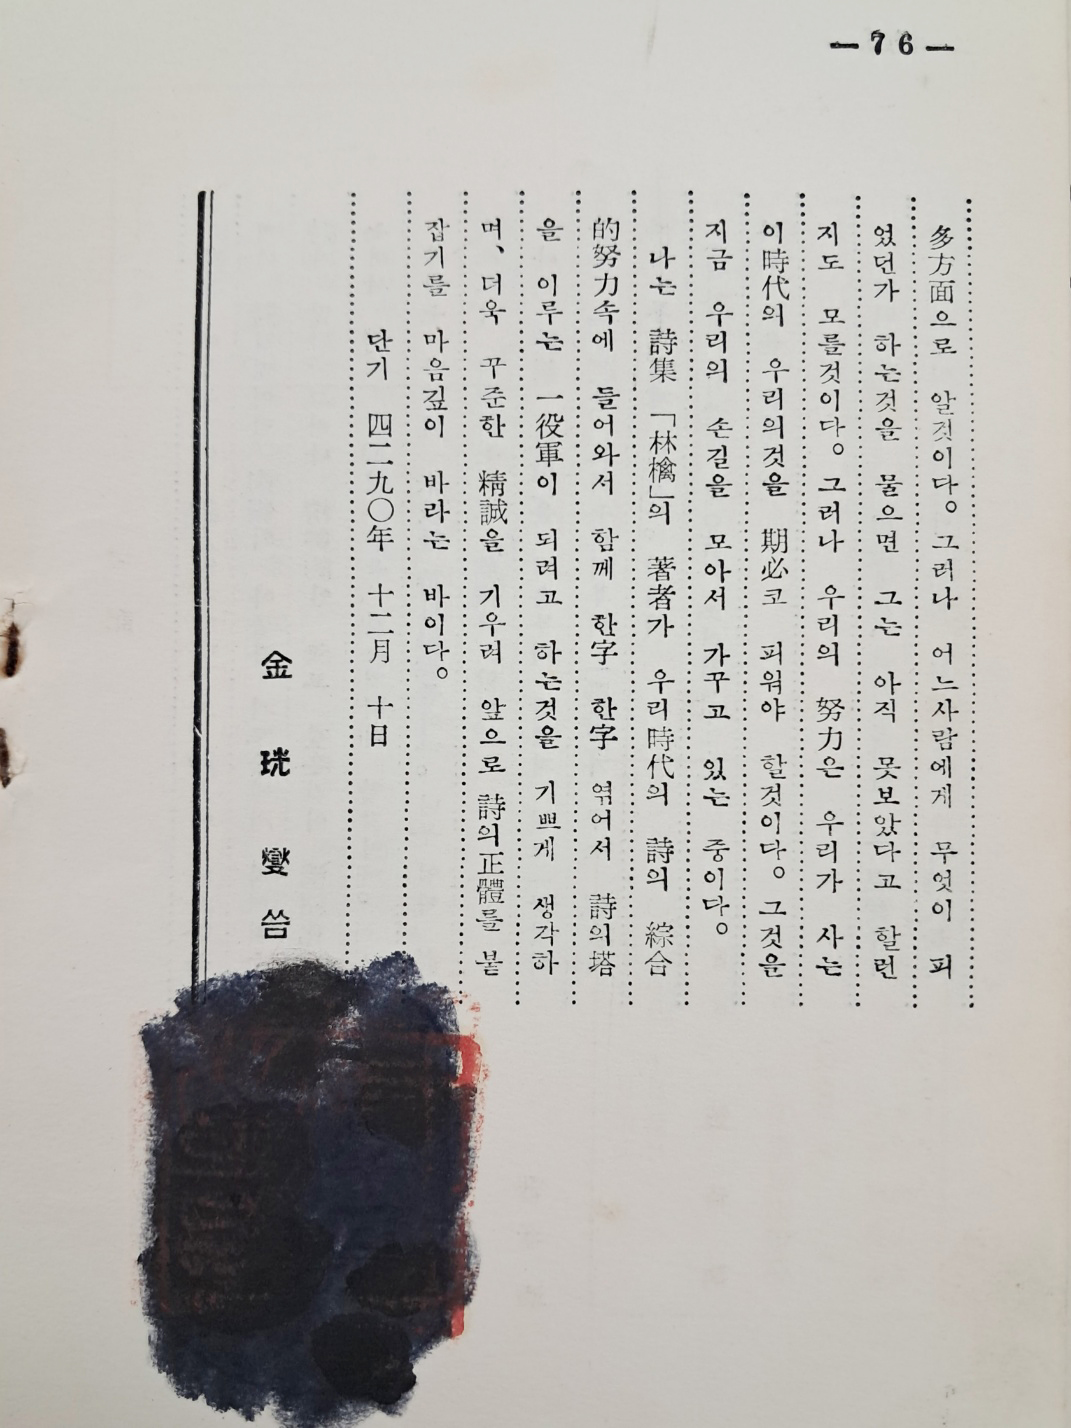 —76—
多方面으로 알것이다。그러나 어느사람에게 무엇이 피
었던가 하는것을 물으면 그는 아직 못보았다고 할런
지도 모를것이다。그러나 우리의 努力은 우리가 사는
이時代의 우리의것을 期必코 피워야 할것이다。그것을
지금 우리의 손길을 모아서 가꾸고 있는 중이다。
나는 詩集「林檎」의 著者가 우리時代의 詩의 綜合
的努力속에 들어와서 함께 한字 한字 엮어서 詩의塔
을 이루는 一役軍이 되려고 하는것을 기쁘게 생각하
며、더욱 꾸준한 精誠을 기우려 앞으로 詩의正體를 붙
잡기를 마음깊이 바라는 바이다。
단기 四二九〇年 十二月 十日
金珖燮 씀